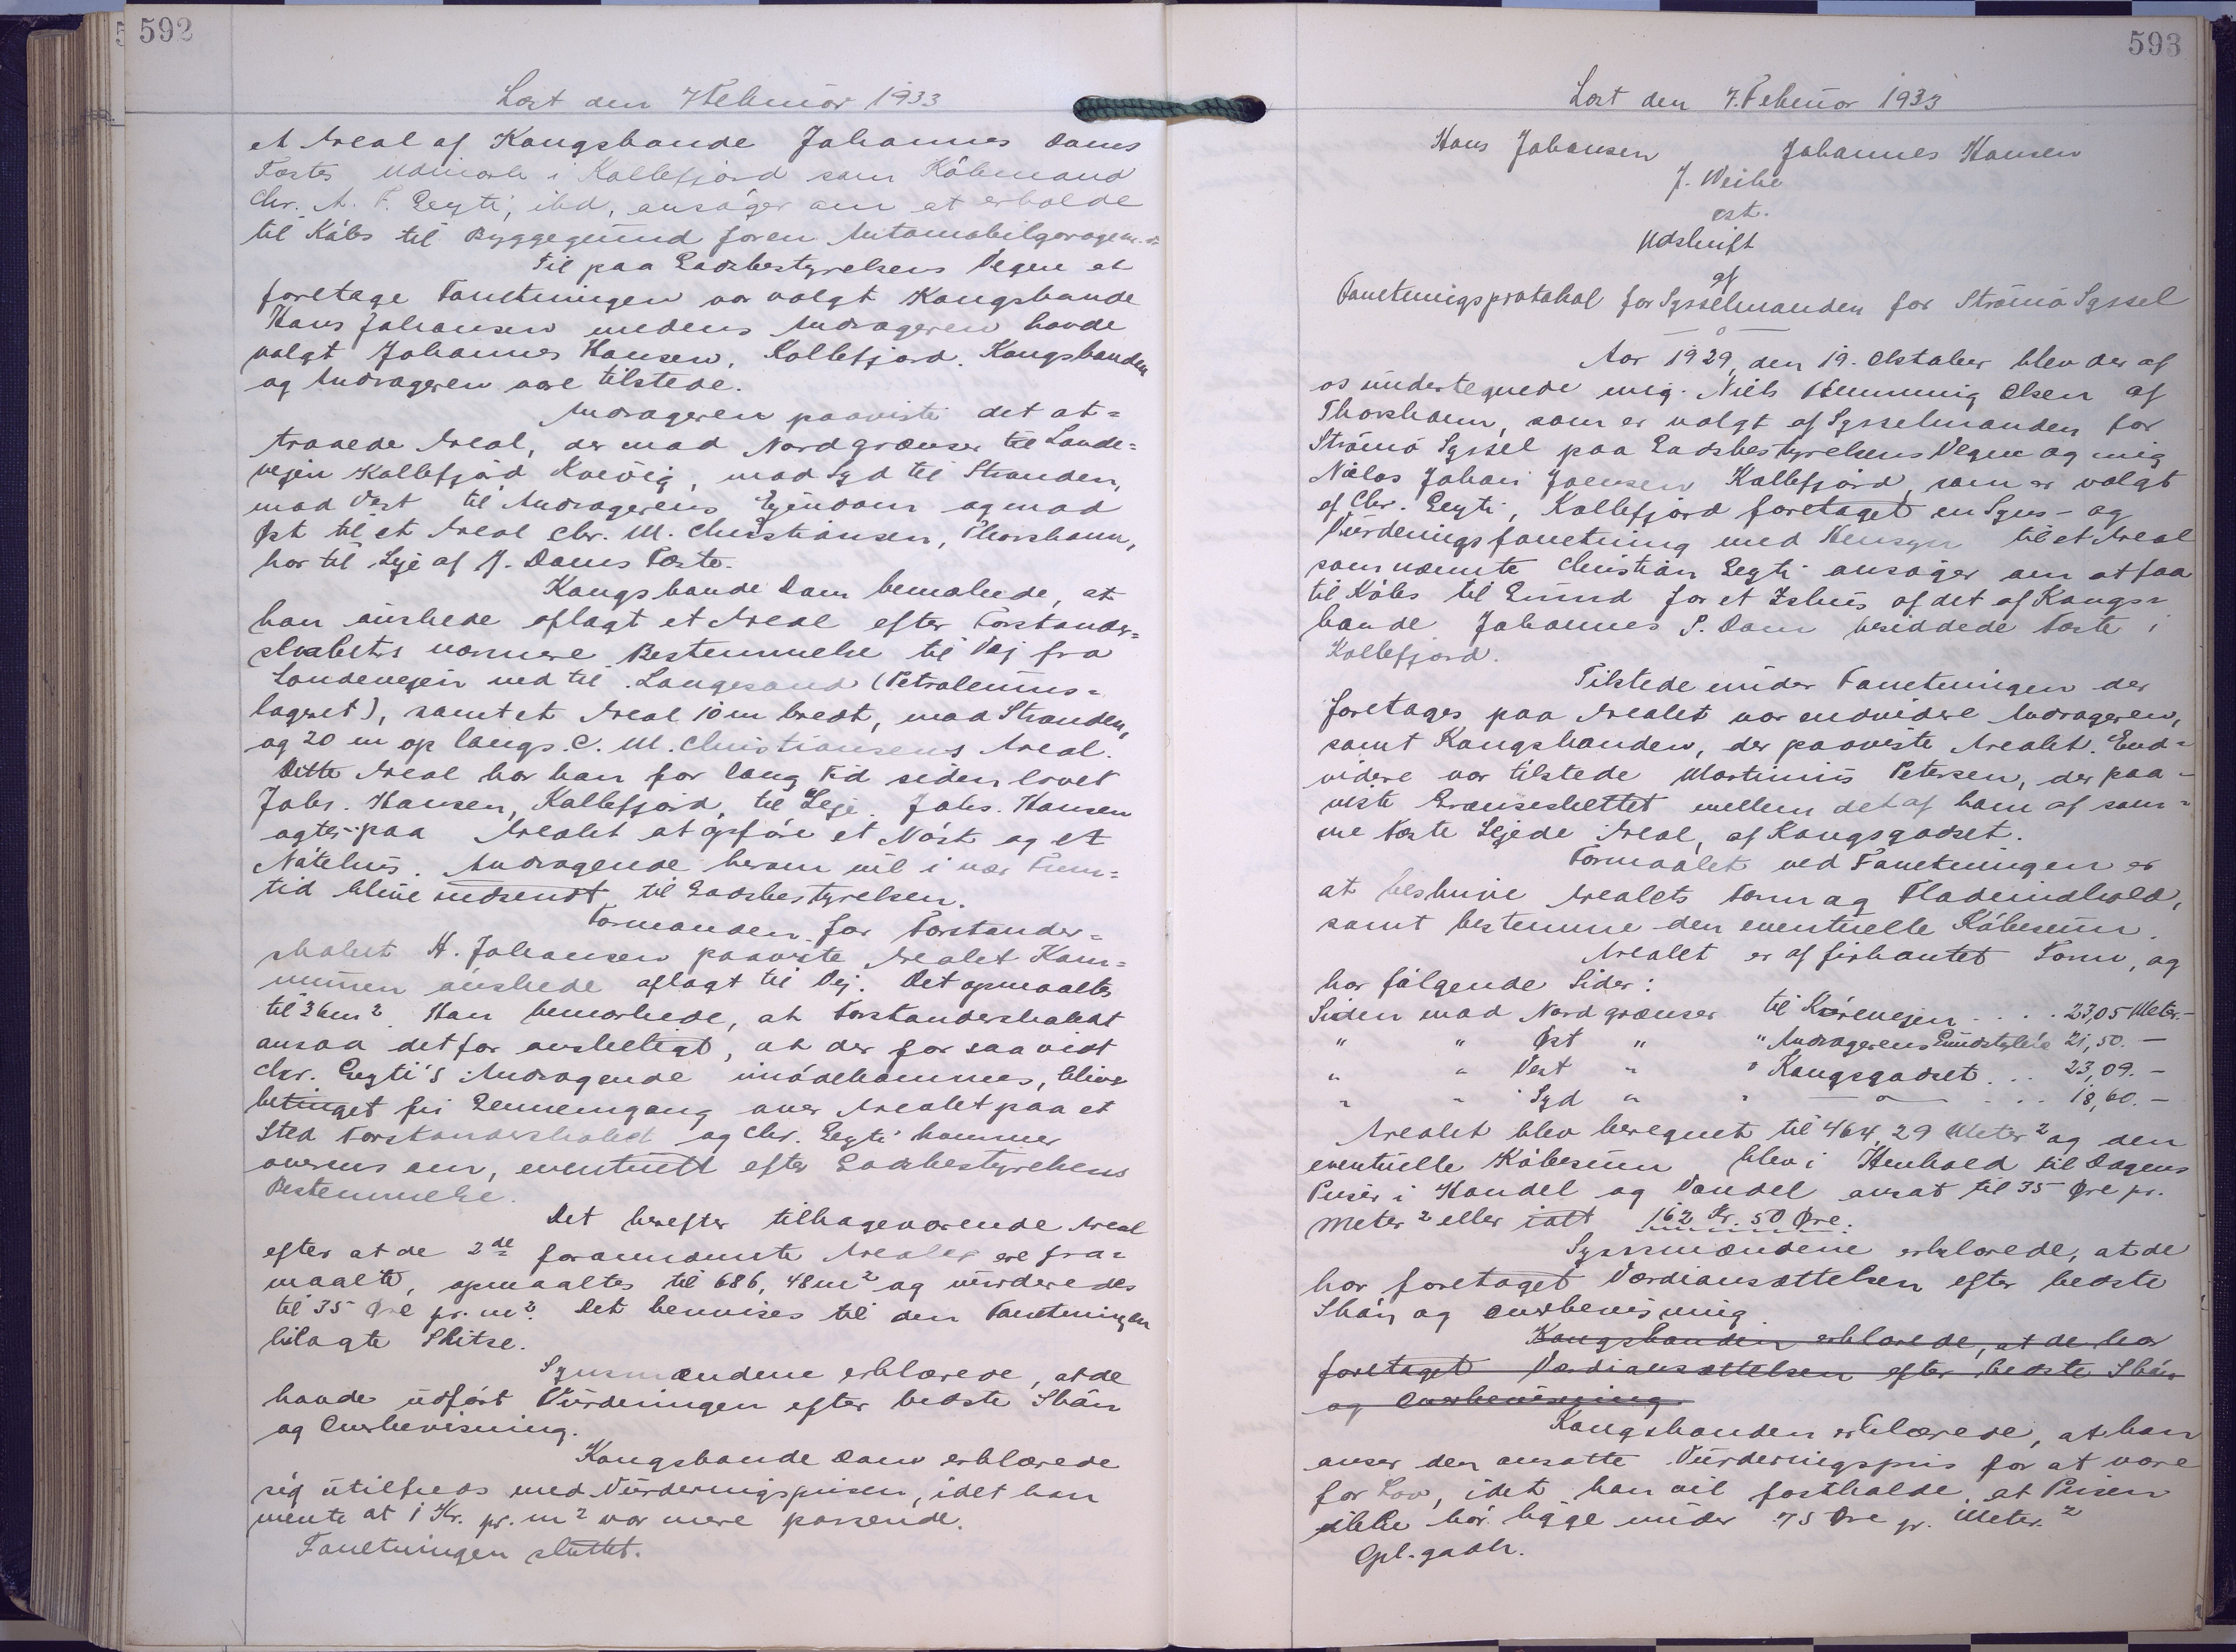 592
Læst den 7 Februar 1933
et Areal af Kongsbonde Johannes Dams
Fæstes Udmark i Kollefjord som Købmand
Chr. A. F. Gegti, ibd, ansøger om at erholde
til Købs til Byggegrund for en Automobilgarage m.v.
Til paa Jordbestyrelsens Vegne at
foretage Forretningen var valgt Kongsbonde
Hans Johansen medens Andrageren havde
valgt Johannes Hansen, Kollefjord. Kongsbonden
og Andrageren vare tilstede.
Andrageren paaviste det at=
traaede Areal, der mod Nord grænser til Lande=
vejen Kollefjord Kvivig, mod Syd til Stranden,
mod Vest til Andragerens Ejendom og mod
Øst til et Areal Chr. M. Christiansen, Thorshavn,
har til Leje af J. Dams Fæste.
Kongsbonde Dam bemærkede, at
han ønskede aflagt et Areal efter Forstander=
skabets nærmere Bestemmelse til Vej fra
Landevejen ned til Langesand (Petroleums=
lageret), samt et Areal 10 m bredt, mod Stranden,
og 20 m op langs C. M. Christiansens Areal.
Dette Areal har han for lang Tid siden lovet
Johs. Hansen, Kollefjord, til Leje. Johs. Hansen
agter paa Arealet at opføre et Nøst og et
Nótehus. Andragende herom vil i nær Frem=
tid blive indsendt til Jordbestyrelsen.
Formanden for Forstander=
skabet H. Johansen paaviste Arealet Kom=
munen ønskede aflagt til Vej. Det opmaaltes
til 36 m² Han bemærkede, at Forstanderskabet
ansaa det for ønskeligt, at der for saa vidt
Chr. Gegti's Andragende imødekommes, blive
betinget fri Gennemgang over Arealet paa et
Sted Forstanderskabet og Chr. Gegti kommer
overens om, eventuelt efter Jordbestyrelsens
Bestemmelse.
Det herefter tilbageværende Areal
efter at de 2de forannævnte Arealer ere fra=
maalte, opmaaltes til 686,48 m² og vurderedes
til 35 Øre pr. m². Det henvises til den Forretningen
bilagte Skitse.
Synsmændene erklærede, at de
havde udført Vurderingen efter bedste Skøn
og Overbevisning.
Kongsbonde Dam erklærede
sig utilfreds med Vurderingsprisen, idet han
mente at 1 Kr. pr. m² var mere passende.
Forretningen sluttet.
593
Læst den 7. Februar 1933
Hans Johansen Johannes Hansen
J. Weihe
cst.
Udskrift
af
Forretningsprotokol for Sysselmanden for Strømø Syssel
— o —
Aar 1929, den 19. Oktober blev der af
os undertegnede mig Niels Hemming Olsen af
Thorshavn, som er valgt af Sysselmanden for
Strømø Syssel paa Jordbestyrelsens Vegne og mig
Niclas Johan Joensen Kollefjord, som er valgt
af Chr. Gegti, Kollefjord foretaget en Syns- og
Vurderingsforretning med Hensyn til et Areal
som nævnte Christian Gegti ansøger om at faa
til Købs til Grund for et Ishus af det af Kongs=
bonde Johannes P. Dam besiddede Fæste i
Kollefjord.
Tilstede under Forretningen der
foretages paa Arealet var endvidere Andrageren,
samt Kongsbonden, der paaviste Arealet. End=
videre var tilstede Martinus Petersen, der paa=
viste Grænseskellet mellem det af ham af sam=
me Fæste Lejede Areal, af Kongsgodset.
Formaalet ved Forretningen er
at beskrive Arealets Form og Fladeindhold,
samt bestemme den eventuelle Købesum.
Arealet er af firkantet Form, og
har følgende Sider:
Siden mod Nord grænser til Kørevejen . . . . 23,05 Meter.—
" " Øst " " Andragerens Grundstykke 21,50. —
" " Vest " " Kongsgodset . . . 23,09. —
" " Syd " " — o — . . . . 18,60. —
Arealet blev beregnet til 464,29 Meter² og den
eventuelle Købesum blev i Henhold til Dagens
Priser i Handel og Vandel ansat til 35 Øre pr.
Meter² eller ialt 162 Kr. 50 Øre.
Synsmændene erklærede, at de
har foretaget Værdiansættelsen efter bedste
Skøn og Overbevisning
Kongsbonden erklærede, at de har
foretaget Værdiansættelsen efter bedste Skøn
og Overbevisning.
Kongsbonden erklærede, at han
anser den ansatte Vurderingspris for at være
for Lav, idet han vil fastholde, at Prisen
ikke bør ligge under 75 Øre pr. Meter.²
Opl. godk.